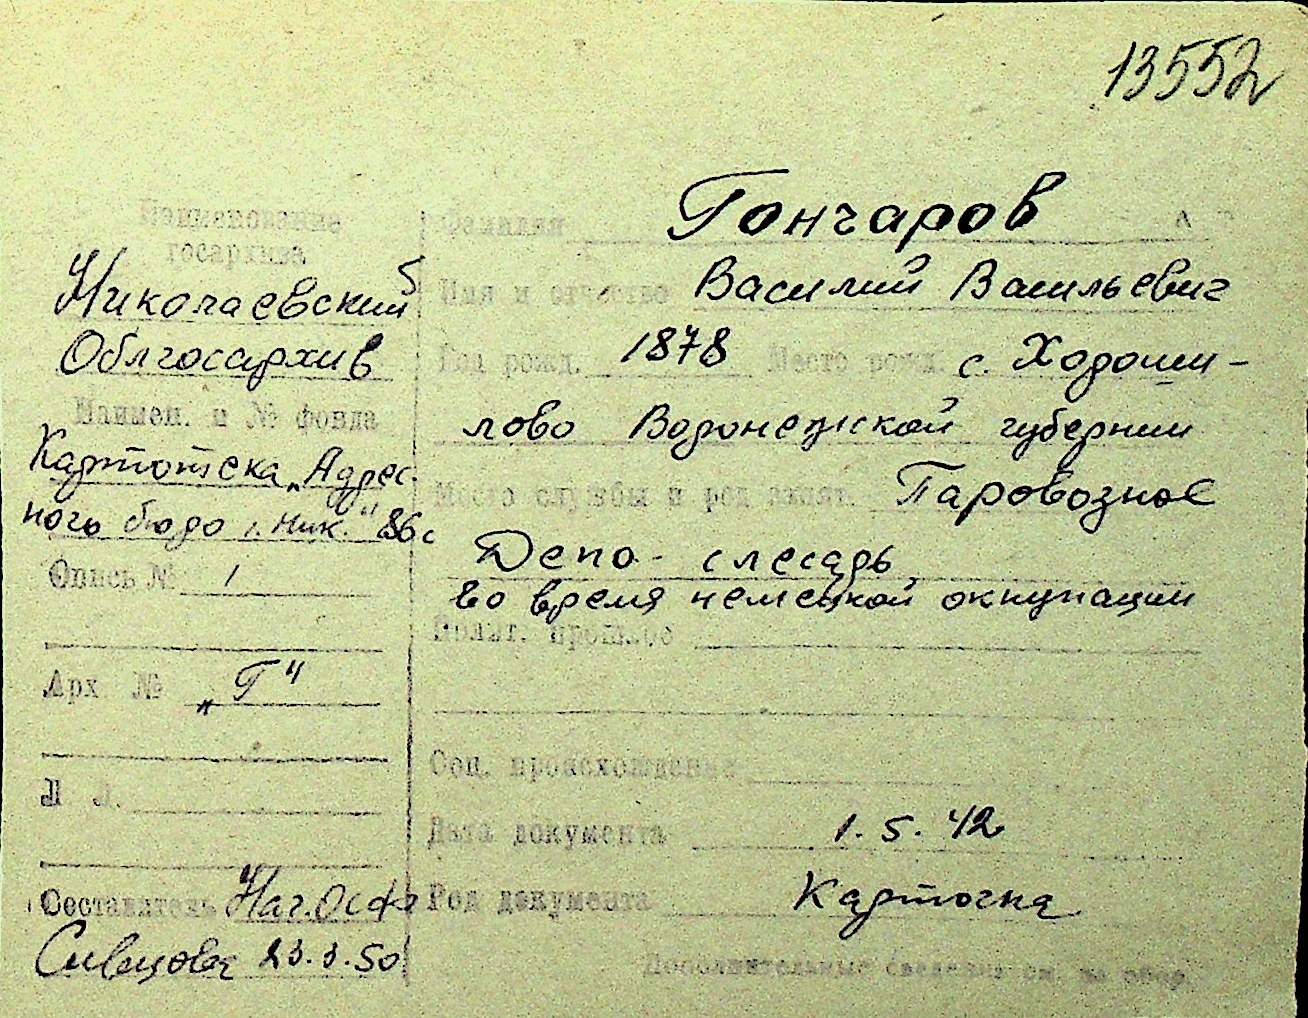 13552
Наименование
госархива
Николаевский
Облгосархив
Наимен. и № фонда
Картотека „Адрес-
ного бюро г. Ник." 86 с
Опись № 1
Арх № „Г"
Л Л.
Составитель Нач. ОСФ
23.3.50
Фамилия Гончаров
Имя и отчество Василий Васильевич
Год рожд. 1878 Место рожд. с. Хороши-
лово Воронежской губернии
Место службы и род занят. Паровозное
Депо - слесарь
во время немецкой оккупации
Полит. прошлое
Соц. происхождение
Дата документа 1.5.42
Род документа Карточка
Дополнительные сведения см. на обор.